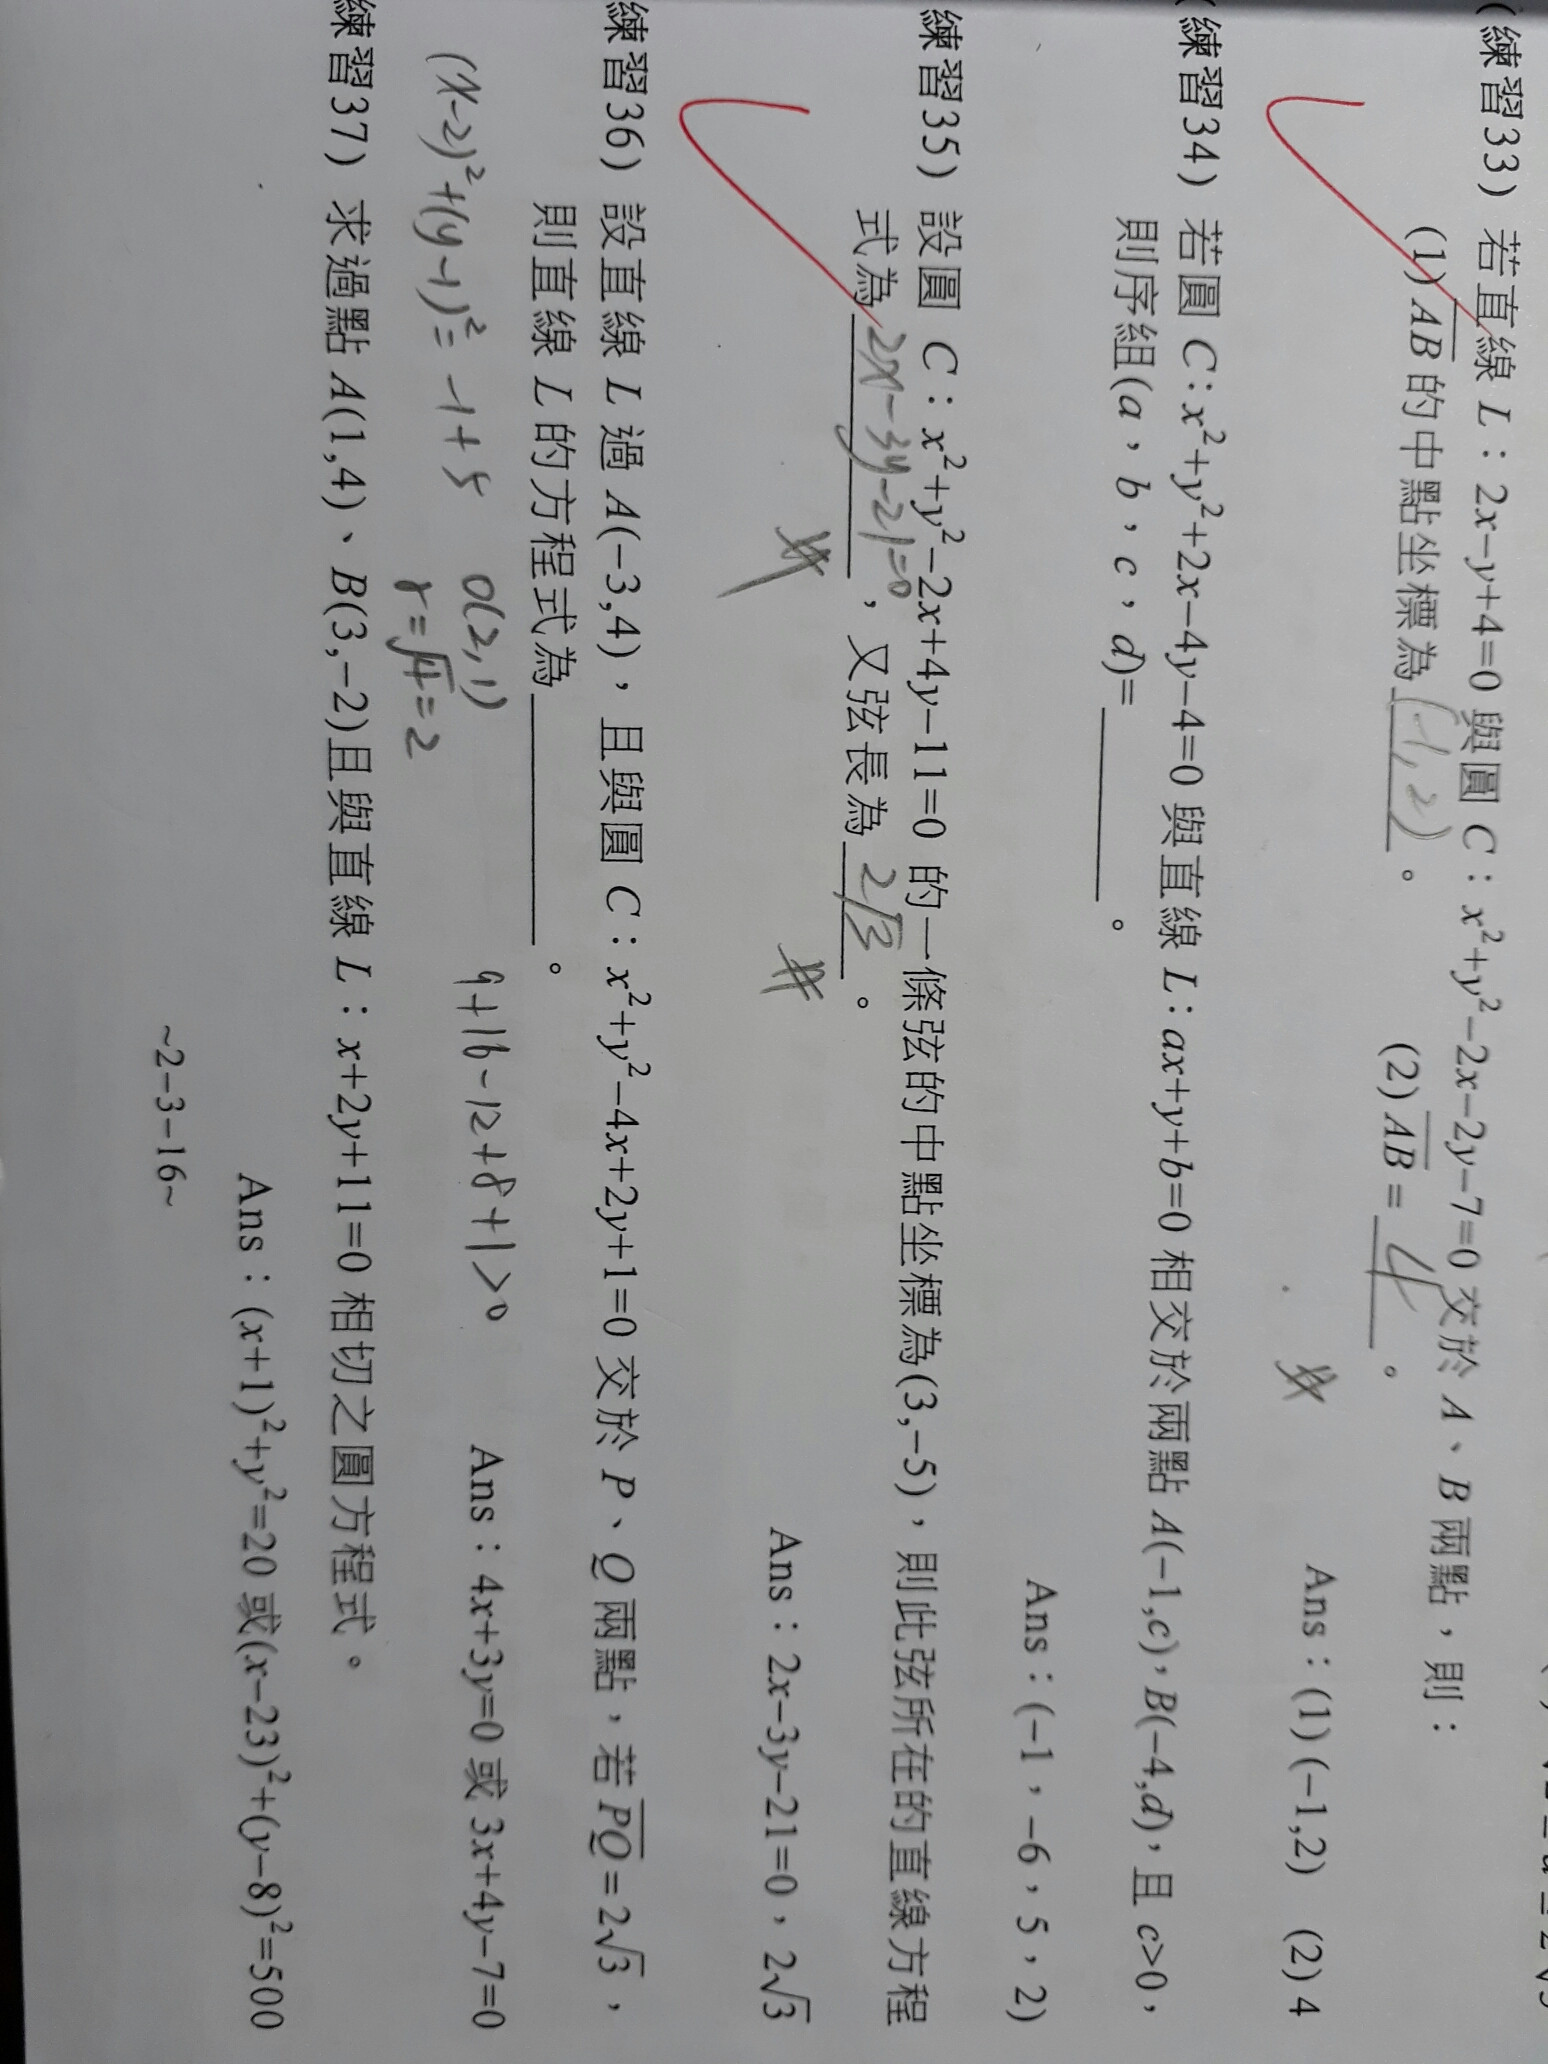 (練習33) 若直線 L：2x−y+4=0 與圓 C：x²+y²−2x−2y−7=0 交於 A、B 兩點，則：
(1) AB 的中點坐標為 (-1,2) 。 (2) AB = 4 。
Ans：(1) (−1,2) (2) 4
(練習34) 若圓 C:x²+y²+2x−4y−4=0 與直線 L:ax+y+b=0 相交於兩點 A(−1,c)，B(−4,d)，且 c>0，
則序組(a，b，c，d)= 。
Ans：(−1，−6，5，2)
練習35) 設圓 C：x²+y²−2x+4y−11=0 的一條弦的中點坐標為(3,−5)，則此弦所在的直線方程
式為 2x-3y-21=0 ，又弦長為 2√3 。
Ans：2x−3y−21=0，2√3
練習36) 設直線 L 過 A(−3,4)，且與圓 C：x²+y²−4x+2y+1=0 交於 P、Q 兩點，若 PQ = 2√3，
則直線 L 的方程式為 。
O(2,1) 9+16-12+8+1>0
Ans：4x+3y=0 或 3x+4y−7=0
(x-2)²+(y-1)²= -1+5
r=√4=2
練習37) 求過點 A(1,4)、B(3,−2)且與直線 L：x+2y+11=0 相切之圓方程式。
Ans：(x+1)²+y²=20 或(x−23)²+(y−8)²=500
~2−3−16~